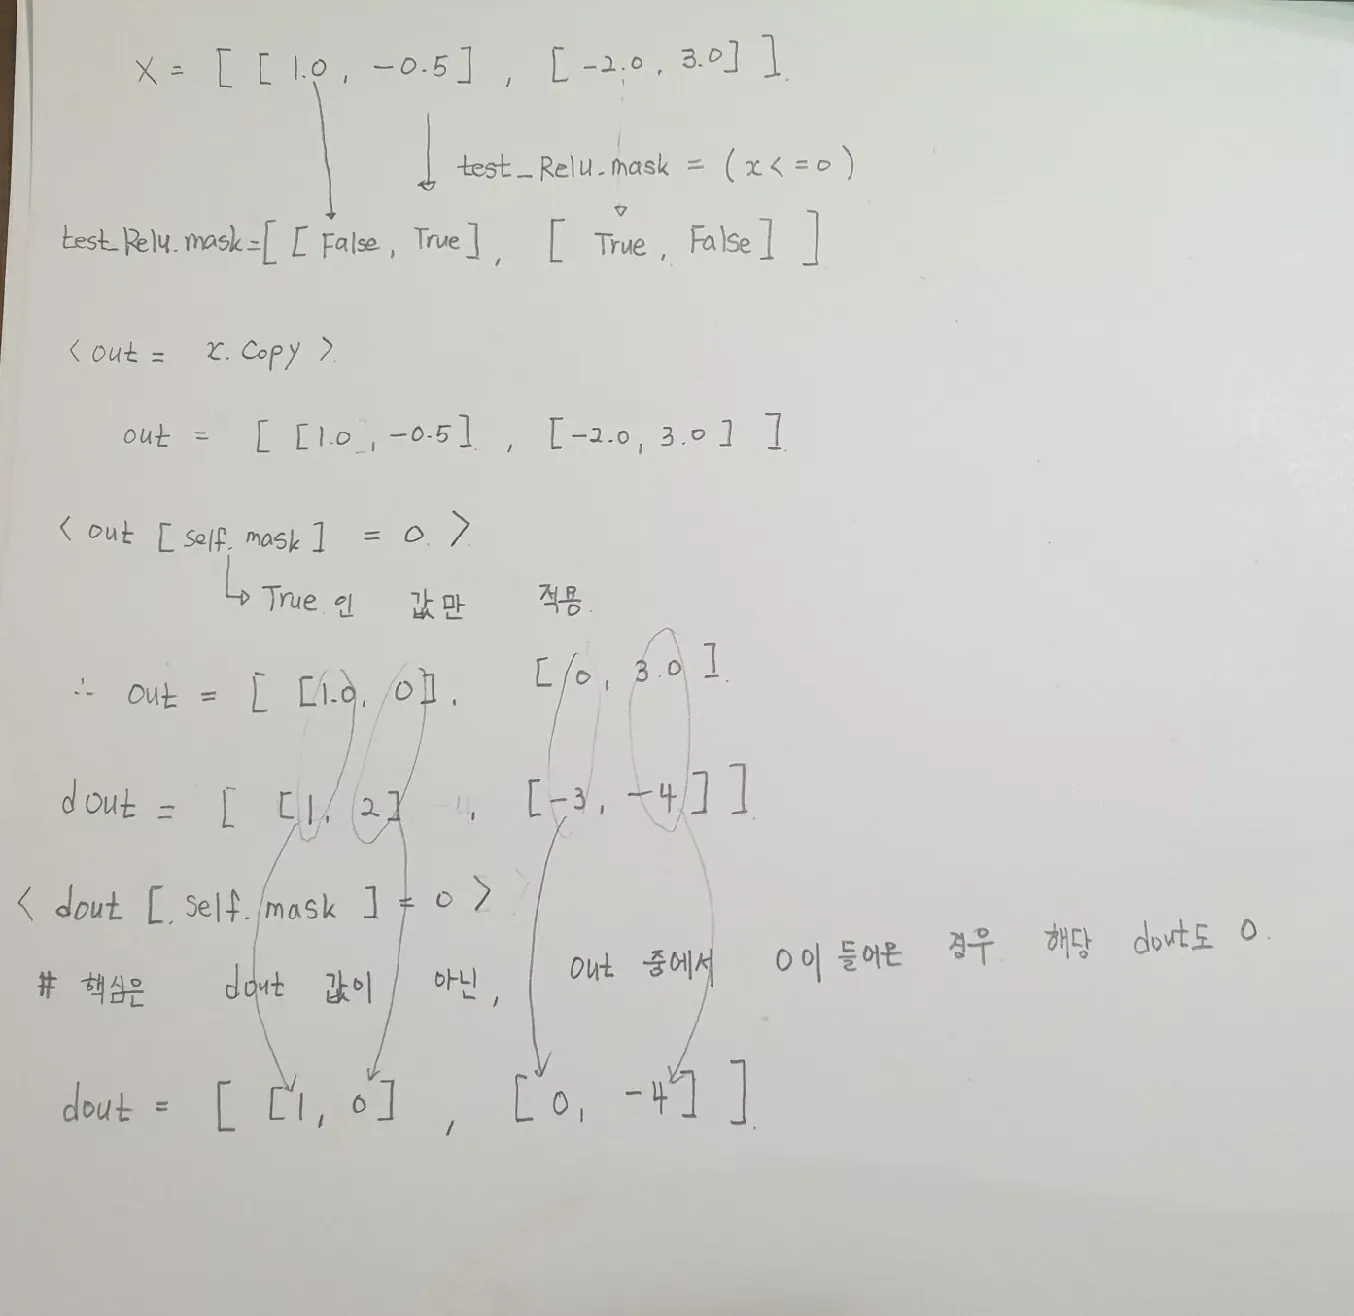 X = [ [ 1.0, -0.5 ] , [ -2.0, 3.0 ] ].
test_Relu.mask = ( x < = 0 )
test_Relu.mask = [ [ False, True ], [ True, False ] ]
< out = x. Copy >
out = [ [ 1.0, -0.5 ] , [ -2.0, 3.0 ] ]
< out [ self. mask ] = 0. >
True 인 값만 적용.
∴ out = [ [1.0, 0]], [ 0, 3.0 ].
dout = [ [1, 2] , [ -3, -4 ] ]
< dout [. self. mask ] = 0 >
# 핵심은 dout 값이 아닌, out 중에서 0이 들어온 경우 해당 dout도 0.
dout = [ [1, 0] , [ 0, -4 ] ].